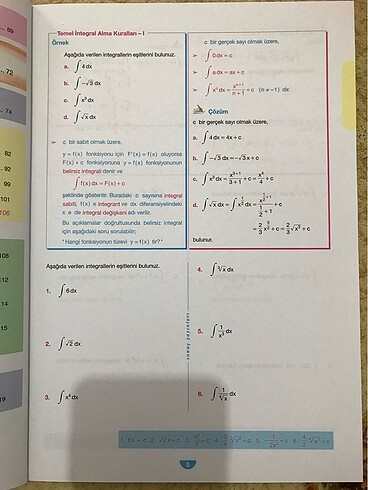 Temel İntegral Alma Kuralları – I
Örnek
Aşağıda verilen integrallerin eşitlerini bulunuz.
a. ∫ 4 dx
b. ∫ –√3 dx
c. ∫ x³ dx
d. ∫ √x dx
➢ c bir sabit olmak üzere,
y = f(x) fonksiyonu için F'(x) = f(x) oluyorsa
F(x) + c fonksiyonuna y = f(x) fonksiyonunun
belirsiz integrali denir ve
∫ f(x) dx = F(x) + c
şeklinde gösterilir. Buradaki c sayısına integral
sabiti, f(x) e integrant ve dx diferansiyelindeki
x e de integral değişkeni adı verilir.
Bu açıklamalar doğrultusunda belirsiz integral
için aşağıdaki soru sorulabilir;
"Hangi fonksiyonun türevi y = f(x) tir?"
c bir gerçek sayı olmak üzere,
➢ ∫ 0 dx = c
➢ ∫ a dx = ax + c
➢ ∫ xⁿ dx = xⁿ⁺¹/(n + 1) + c (n ≠ –1) dir.
Çözüm
c bir gerçek sayı olmak üzere,
a. ∫ 4 dx = 4x + c
b. ∫ –√3 dx = –√3 x + c
c. ∫ x³ dx = x³⁺¹/(3 + 1) + c = x⁴/4 + c
d. ∫ √x dx = ∫ x^(1/2) dx = x^(1/2 + 1)/(1/2 + 1) + c
= 2/3 x^(3/2) + c = 2/3 √x³ + c
bulunur.
Aşağıda verilen integrallerin eşitlerini bulunuz.
1. ∫ 6 dx
2. ∫ √2 dx
3. ∫ x⁴ dx
4. ∫ ∛x dx
5. ∫ 1/x³ dx
6. ∫ 1/∜x dx
1. 6x + c 2. √2x + c 3.
5
69
72
74
82
92
99
101
106
108
112
114
115
119